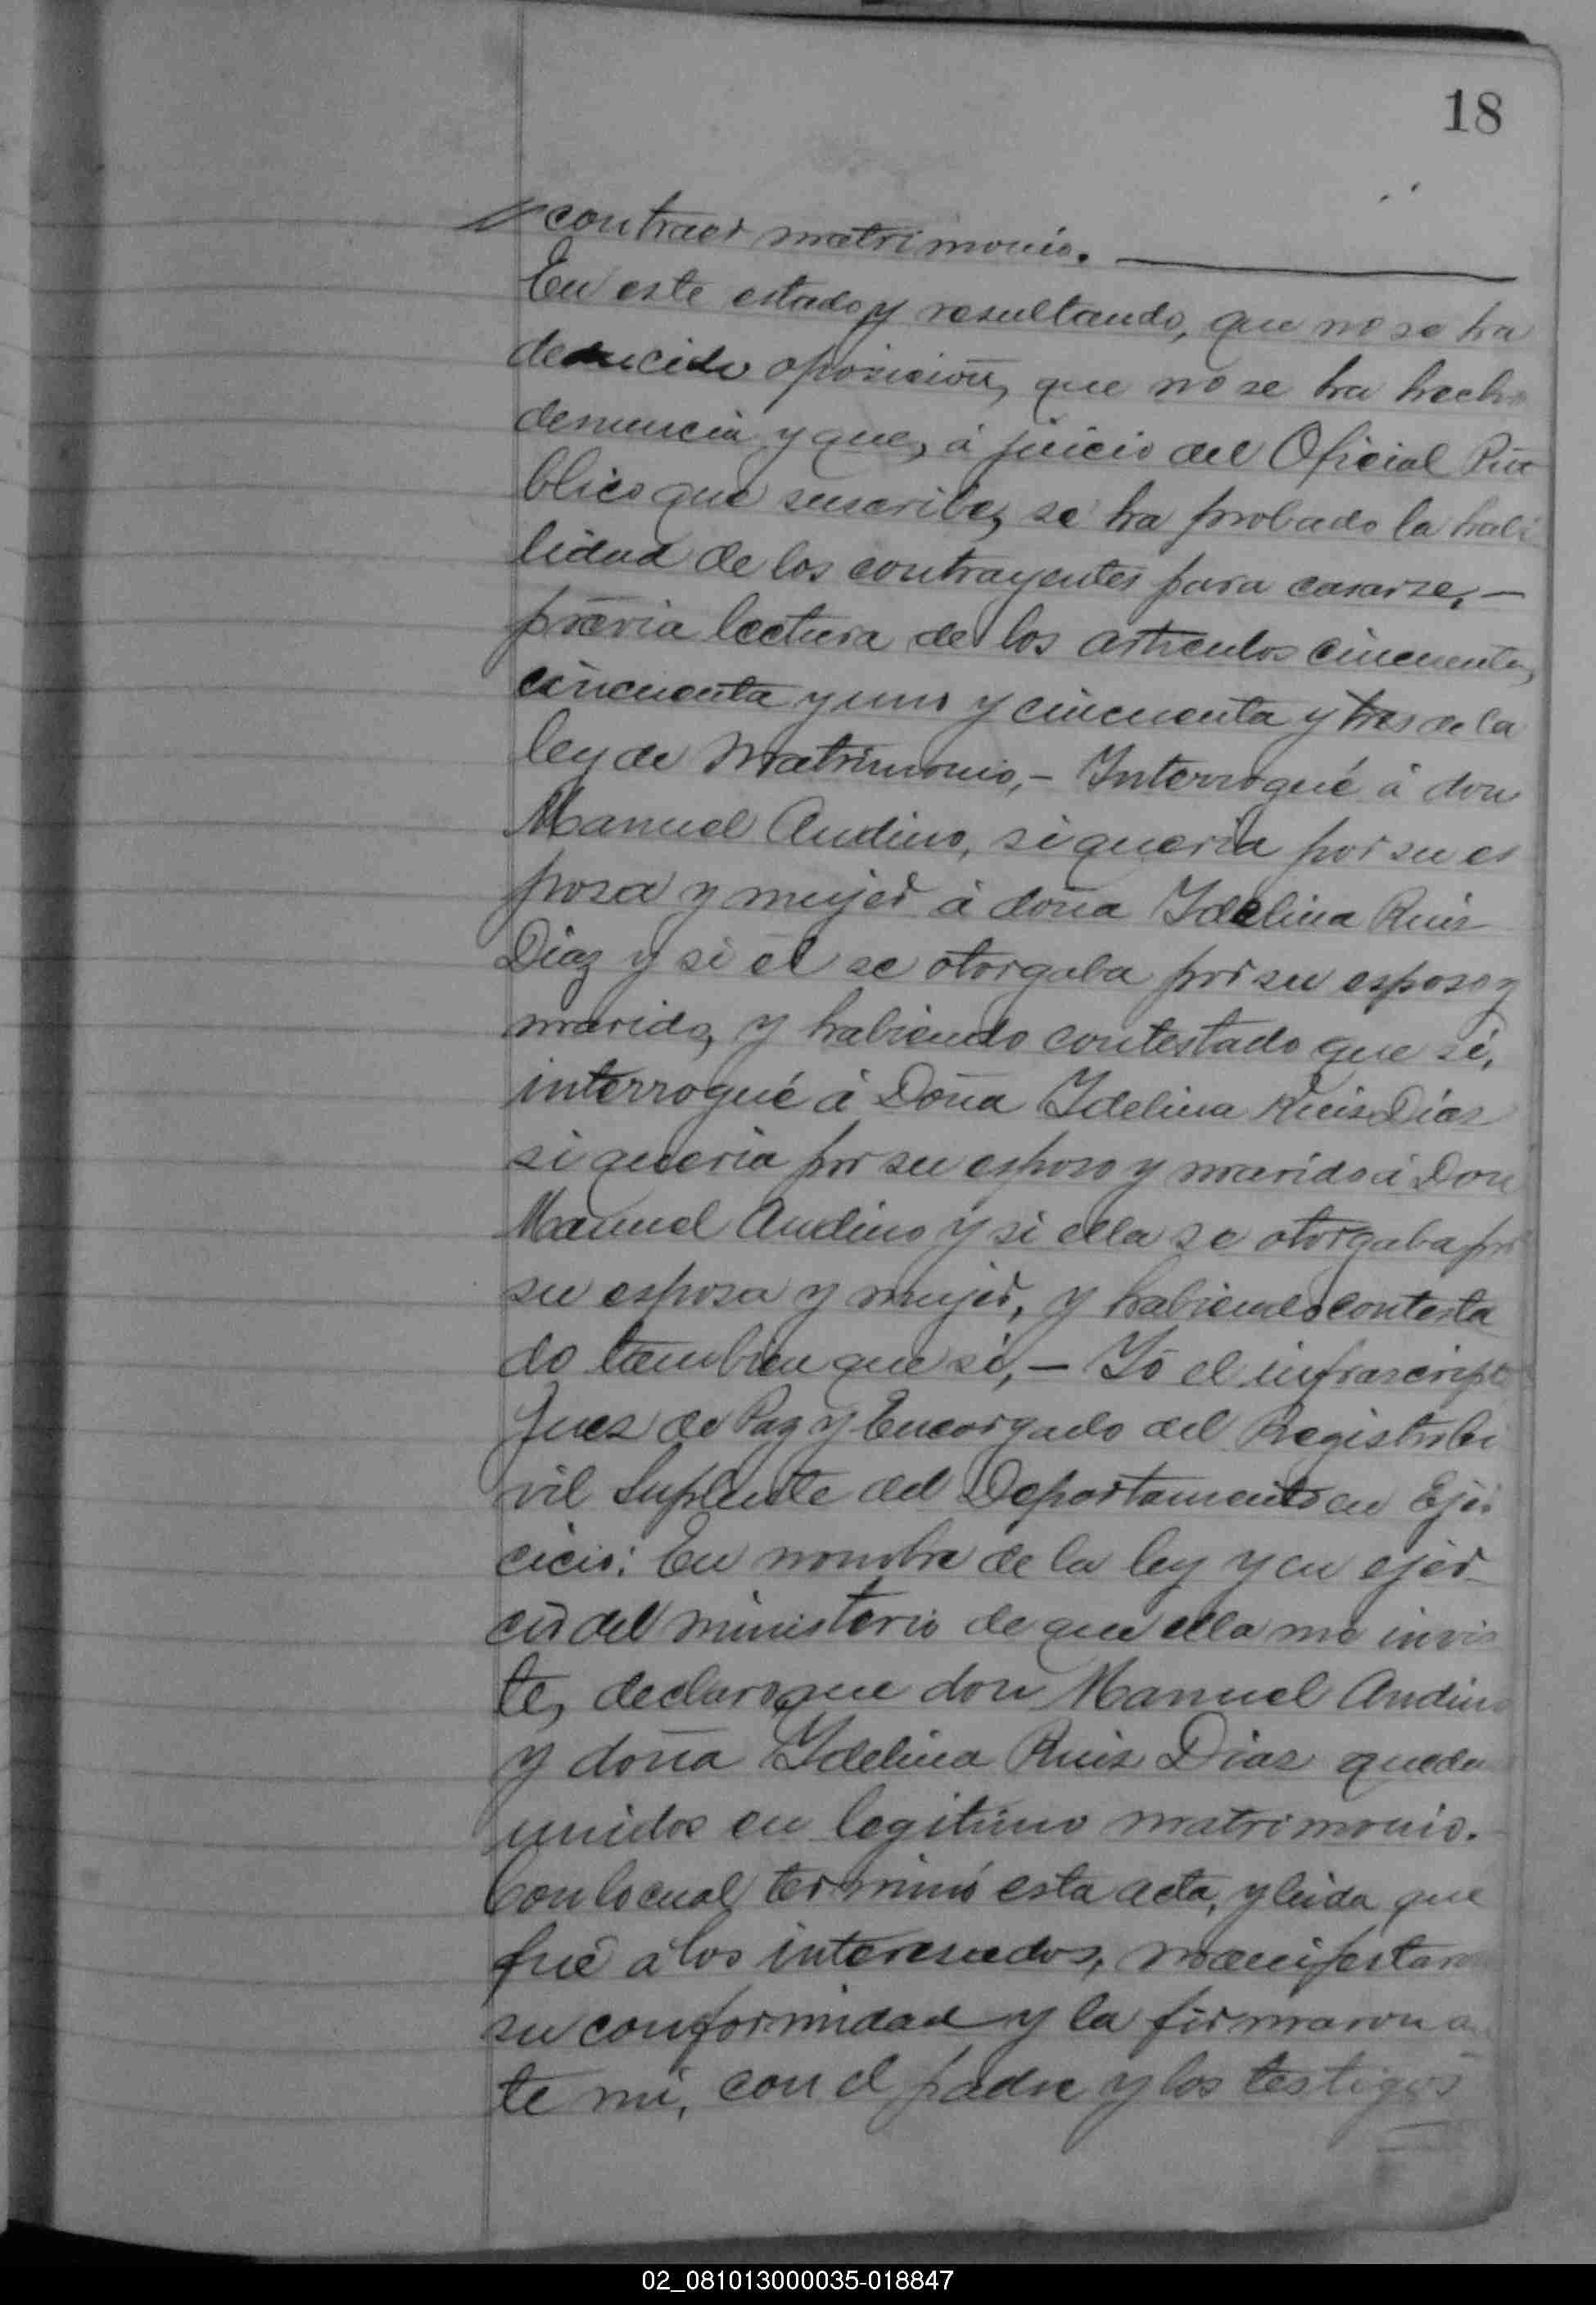 18
contraer matrimonio.
En este estado y resultando, que no se ha
deducido oposición, que no se ha hecho
denuncia y que, á juicio del Oficial Pú
blico que suscribe, se ha probado la habi
lidad de los contrayentes para casarse, —
prévia lectura de los articulos cincuenta,
cincuenta y uno y cincuenta y tres de la
ley de Matrimonio, — Interrogué á don
Manuel Andino, si queria por su es
posa y mujer á doña Idelina Ruis
Diaz y si él se otorgaba por su esposo y
marido, y habiendo contestado que si,
interrogué á Doña Idelina Ruis Dias
si queria por su esposo y marido á Don
Manuel Andino y si ella se otorgaba por
su esposa y mujer, y habiendo contesta
do tambien que si, — Yó el infrascripto
Jues de Paz y Encargado del Registro Ci
vil Suplente del Departamento en Ejer
cicio: En nombre de la ley y en ejer
cio del ministerio de que ella me invis
te, declaro que don Manuel Andino
y doña Idelina Ruis Dias quedan
unidos en legitimo matrimonio.
Con lo cual terminó esta acta, y leida que
fué á los interesados, manifestaron
su conformidad y la firmaron an
te mi, con el padre y los testigos
02_081013000035-018847